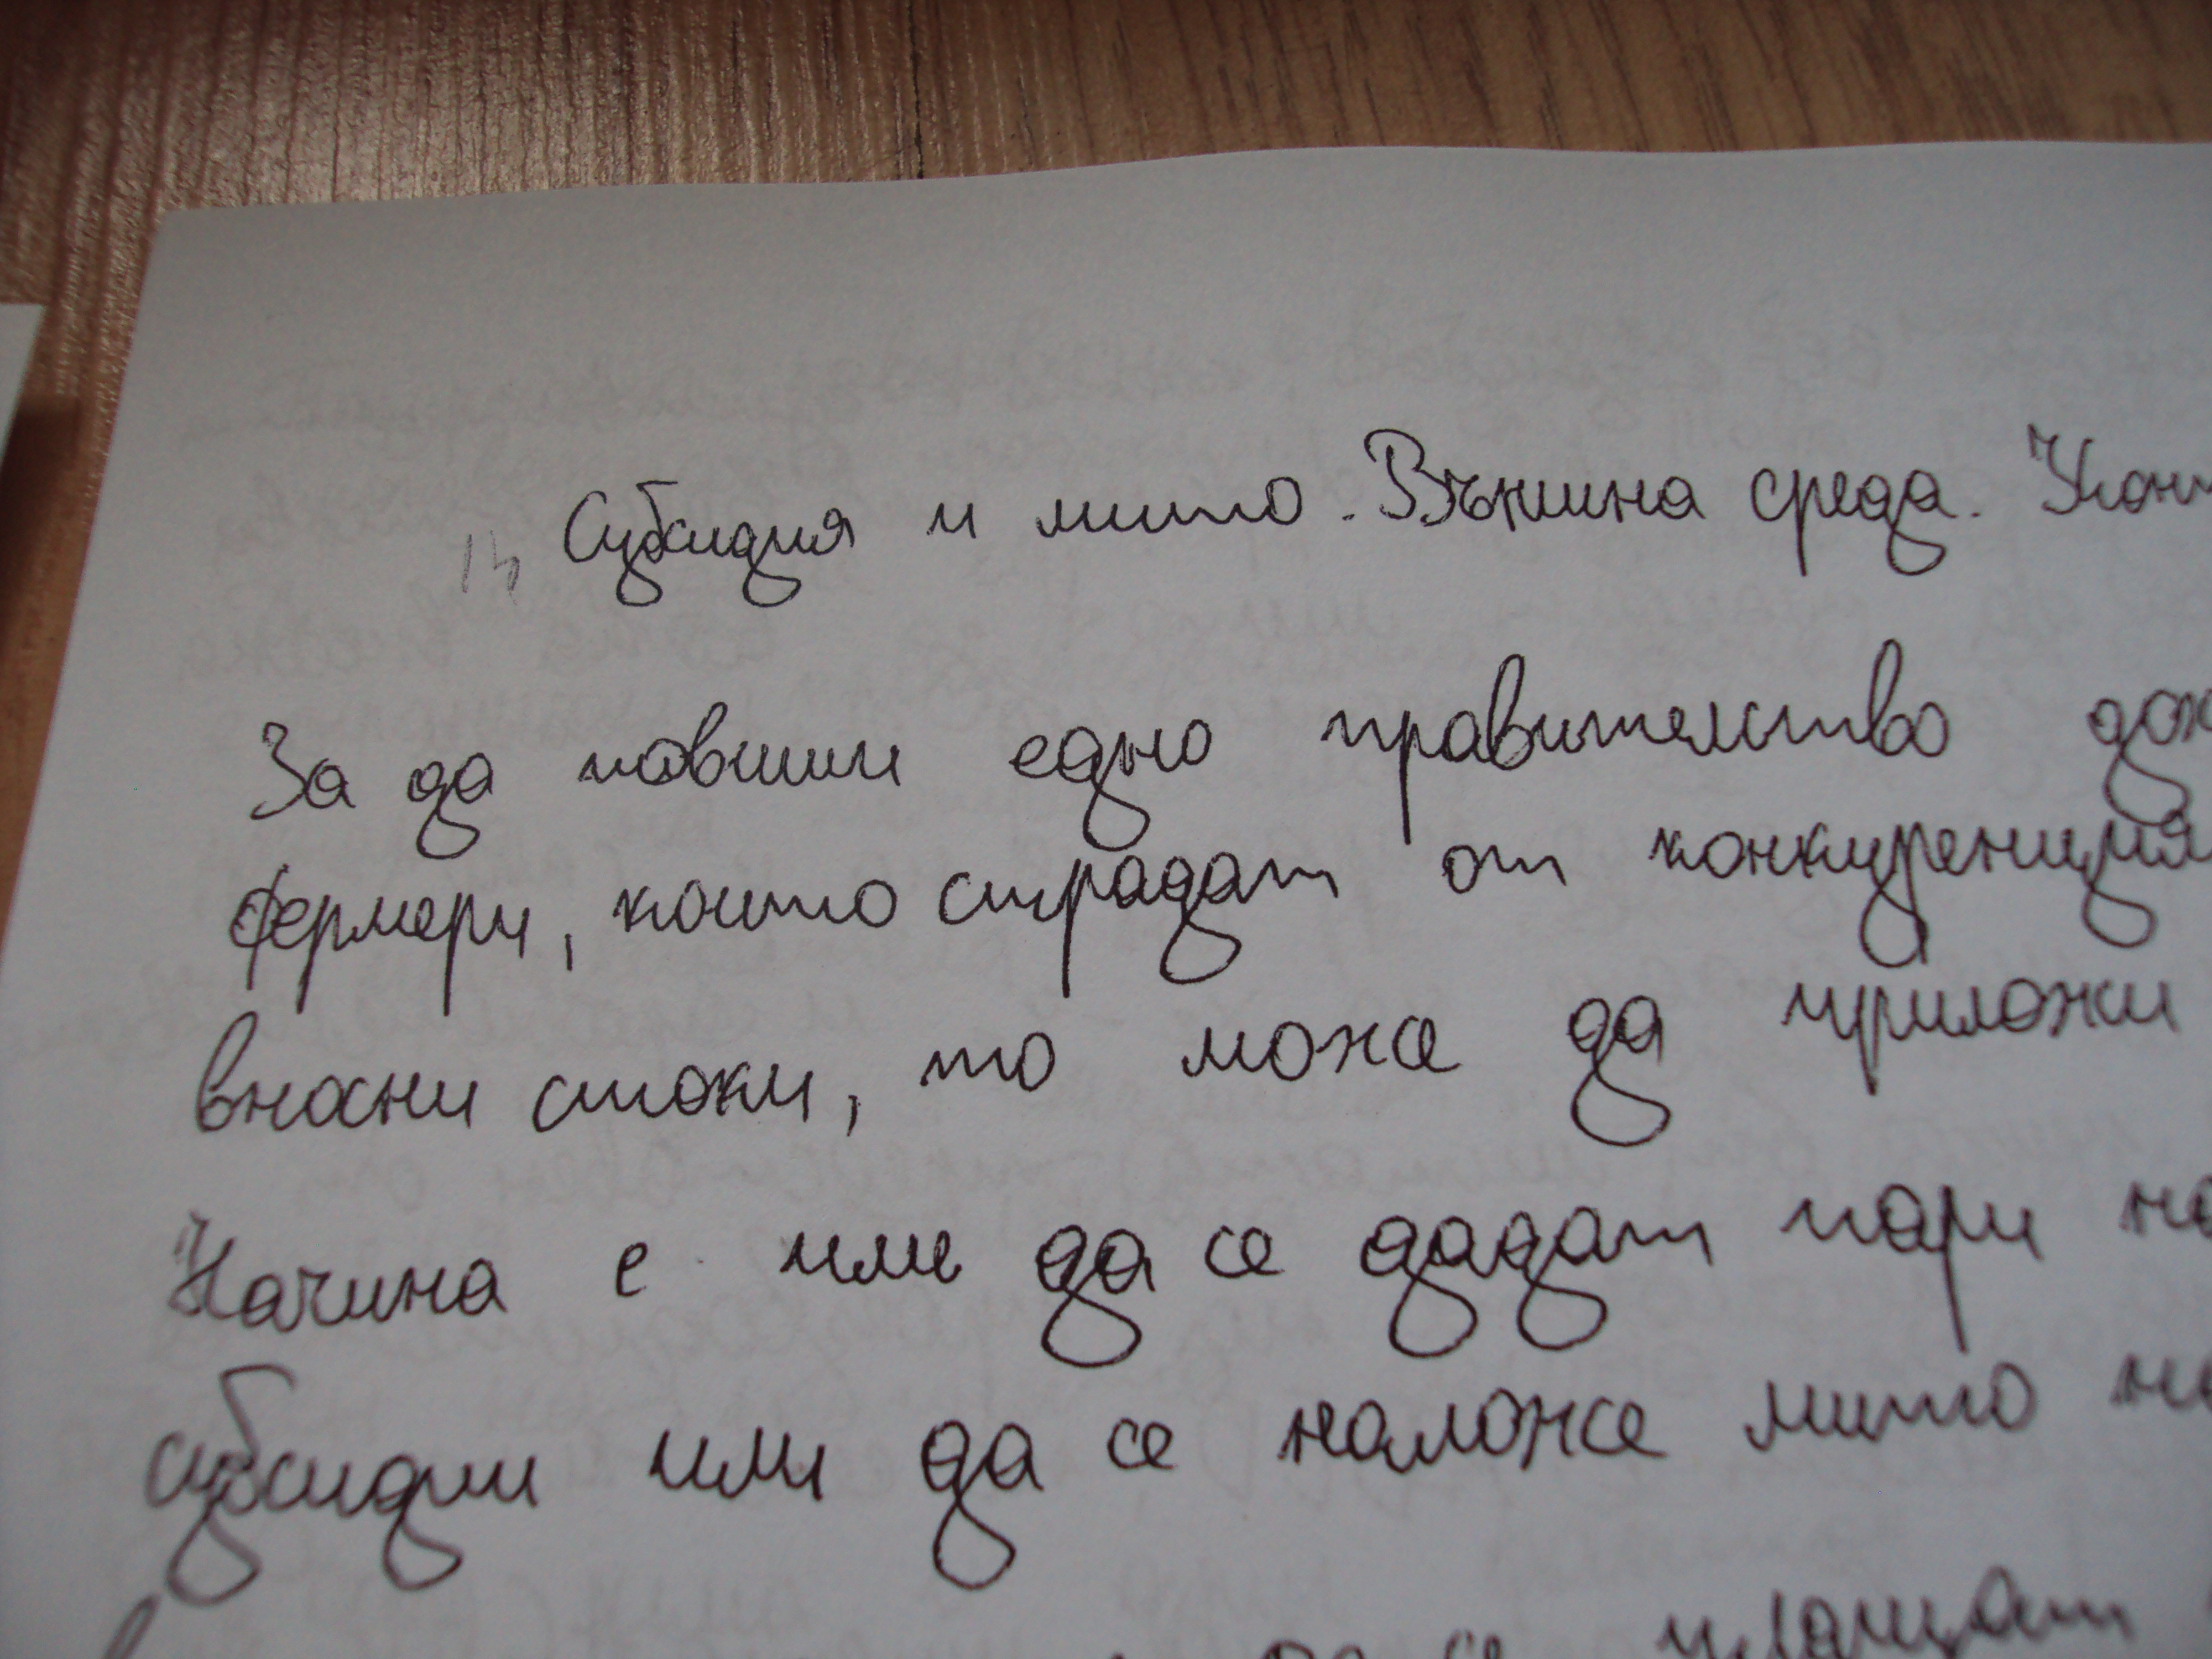 Субсидия и мито. Външна среда.
За да повиши едно правителство
фермери, които страдат от конкуренция
вносни стоки, то може да приложи
Начина е или да се дадат пари
субсидии или да се наложе мито
плащат